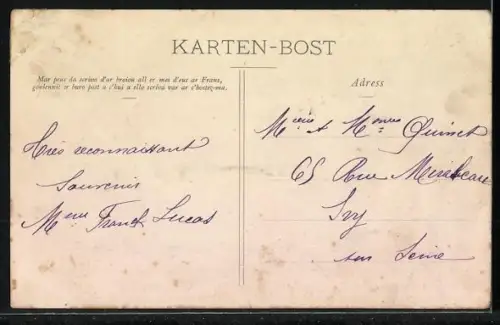 KARTEN-BOST
Mar peus da scrivan d'ar broiou all er mez d'euz ar Frans,
goulennit er buro post a c'hui a ello scriva var ar c'hostez-ma.
Adress
Très reconnaissant
Souvenir
Mme Franck Lucas
Mr et Mme Quinet
65 Rue Mirabeau
Ivry
sur Seine